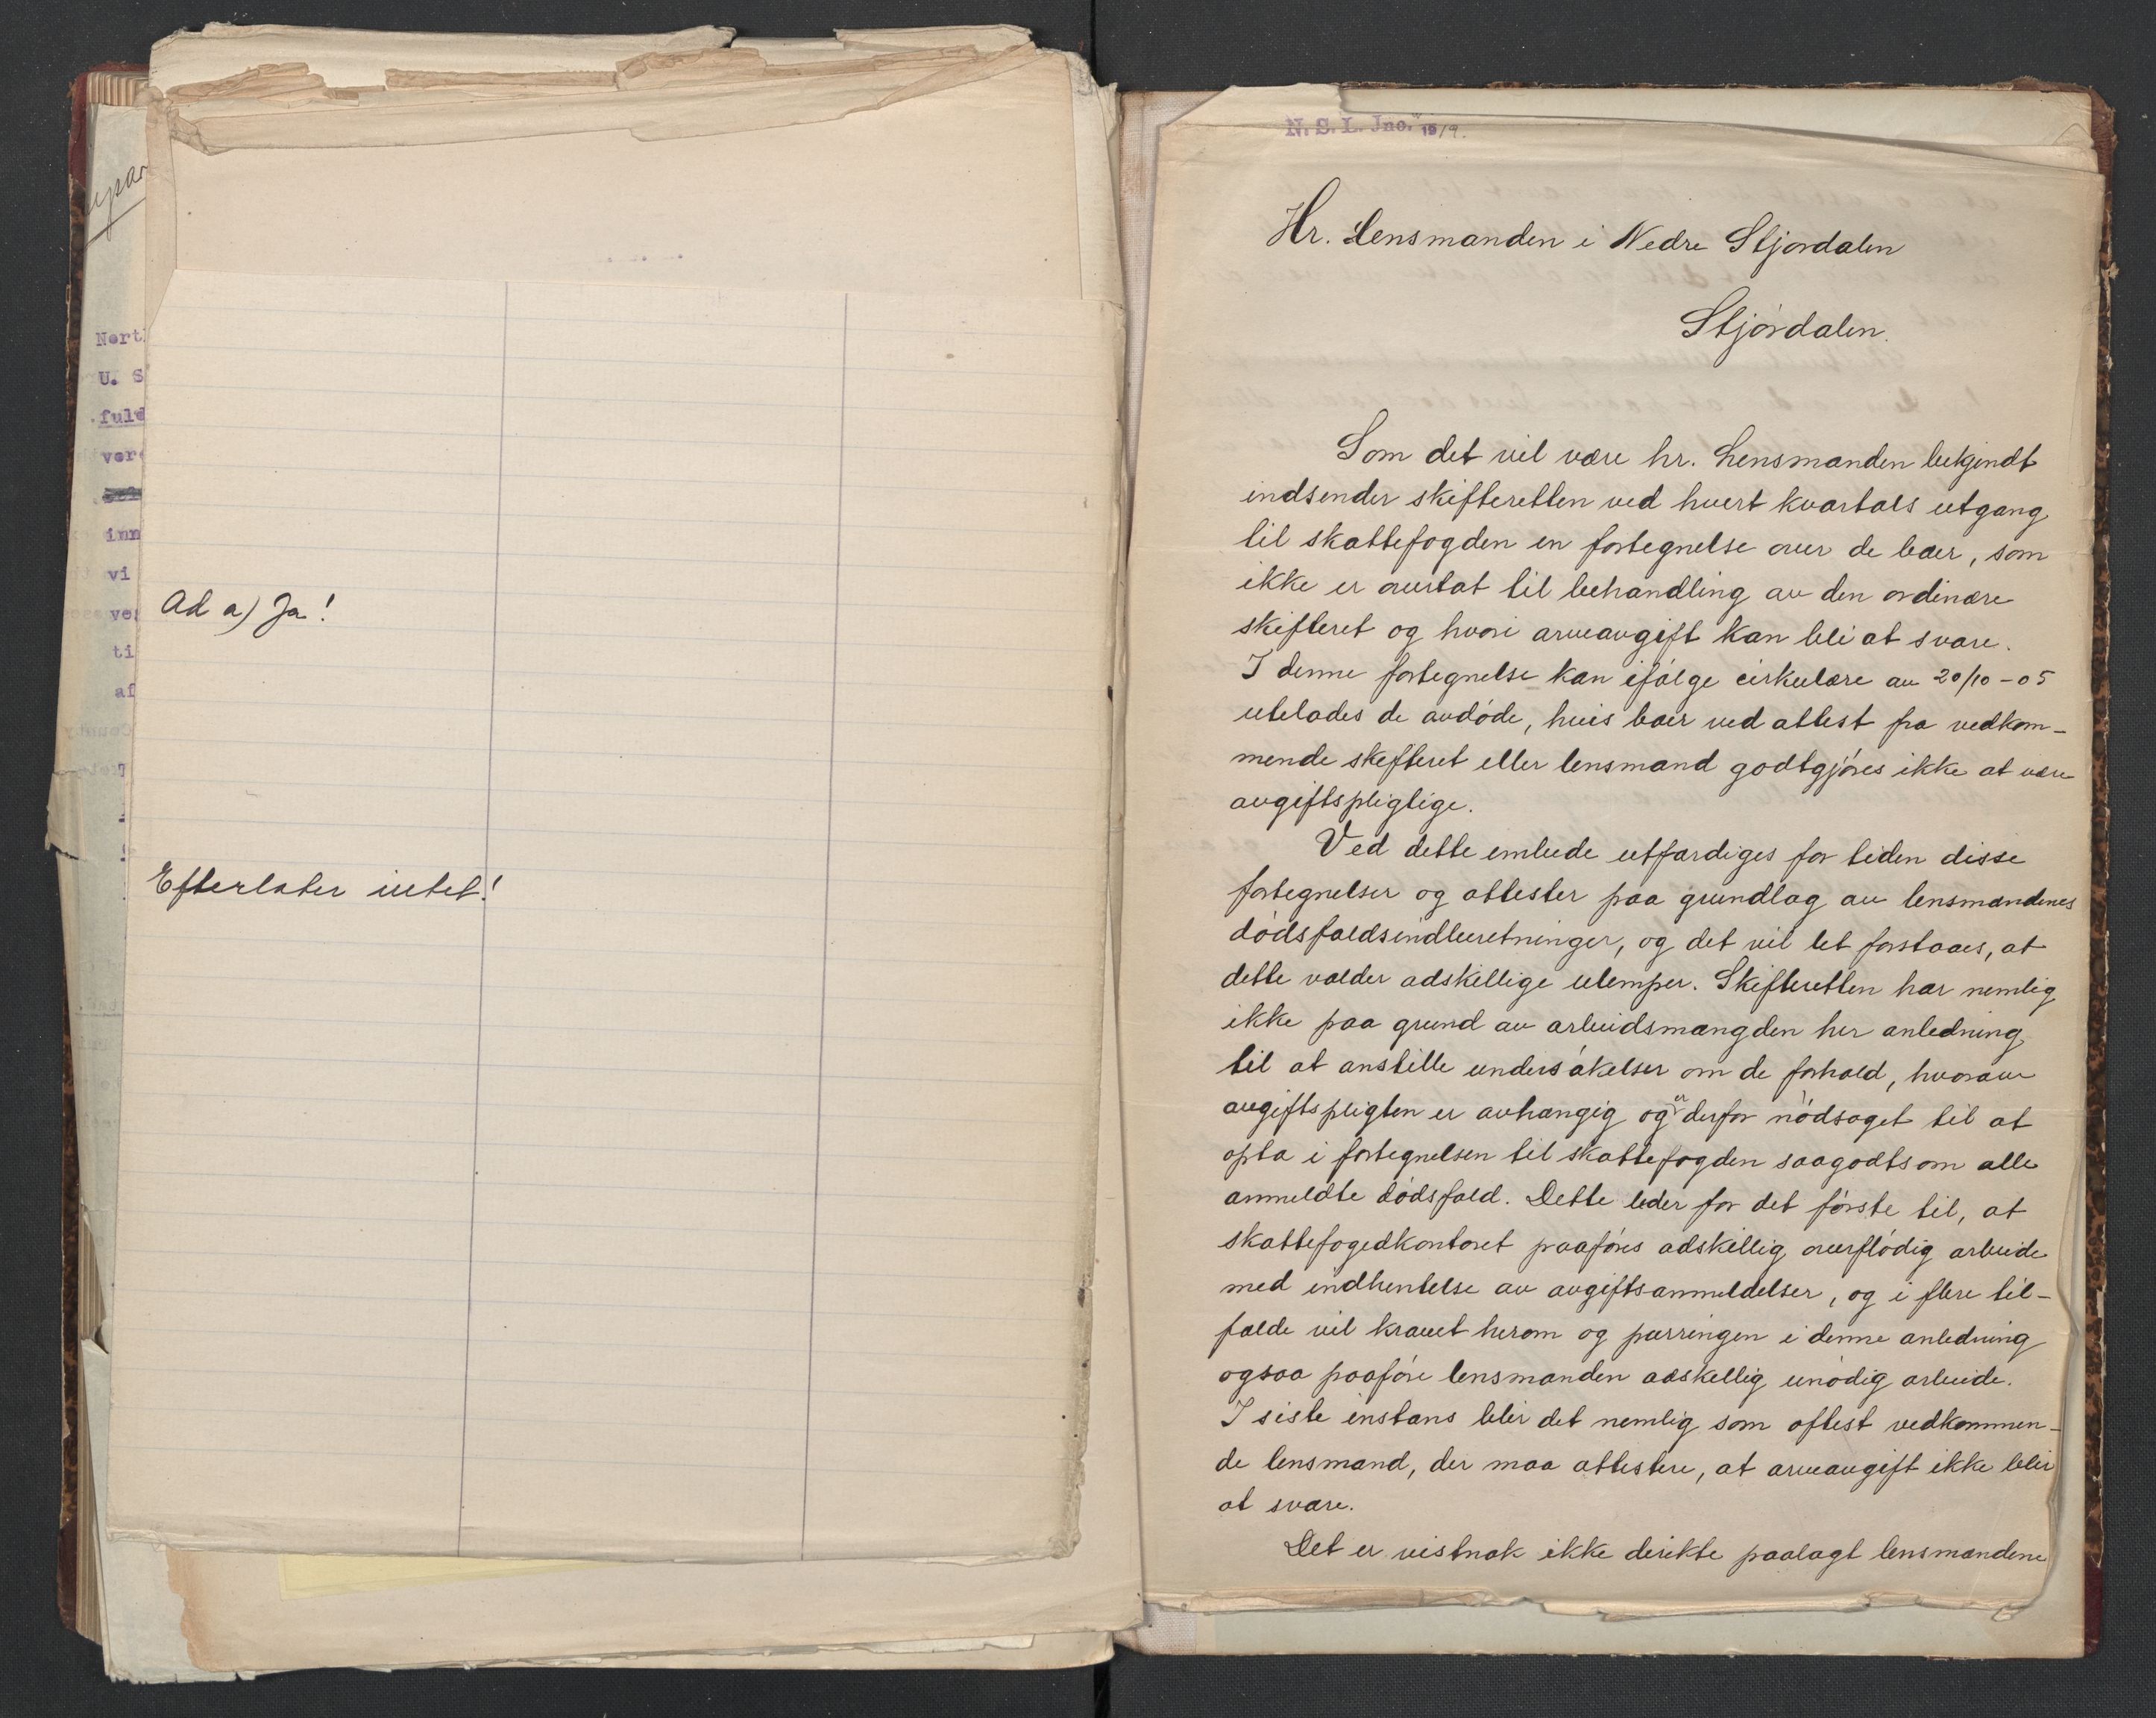 upar
Nort
U. S
fuld
vere
inn
vi
ve
ti
af
Ad a) Ja!
Efterlater intet!
N. S. L. Jno. 1919.
Hr. Lensmanden i Nedre Stjørdalen
Stjørdalen.
Som det vil være hr. lensmanden bekjendt
indsender skifteretten ved hvert kvartals utgang
til skattefogden en fortegnelse over de boer, som
ikke er overtat til behandling av den ordinære
skifteret og hvori arveavgift kan bli at svare.
I denne fortegnelse kan ifølge cirkulære av 20/10-05
utelades de avdøde, hvis boer ved attest fra vedkom-
mende skifteret eller lensmand godtgjøres ikke at være
avgiftspligtige.
Ved dette embede utfærdiges for tiden disse
fortegnelser og attester paa grundlag av lensmændenes
dødsfaldsindberetninger, og det vil let forstaaes, at
dette volder adskillige ulemper. Skifteretten har nemlig
ikke paa grund av arbeidsmængden her anledning
til at anstille undersøkelser om de forhold, hvorav
avgiftspligten er avhængig og er derfor nødsaget til at
opta i fortegnelsen til skattefogden saagodtsom alle
anmeldte dødsfald. Dette leder for det første til, at
skattefogedkontoret paaføres adskillig overflødig arbeide
med indhentelse av avgiftsanmeldelser, og i flere til-
fælde vil kravet herom og purringen i denne anledning
ogsaa paaføre lensmanden adskillig unødig arbeide.
I siste instans blir det nemlig som oftest vedkommen-
de lensmand, der maa attestere, at arveavgift ikke blir
at svare.
Det er vistnok ikke direkte paalagt lensmændene